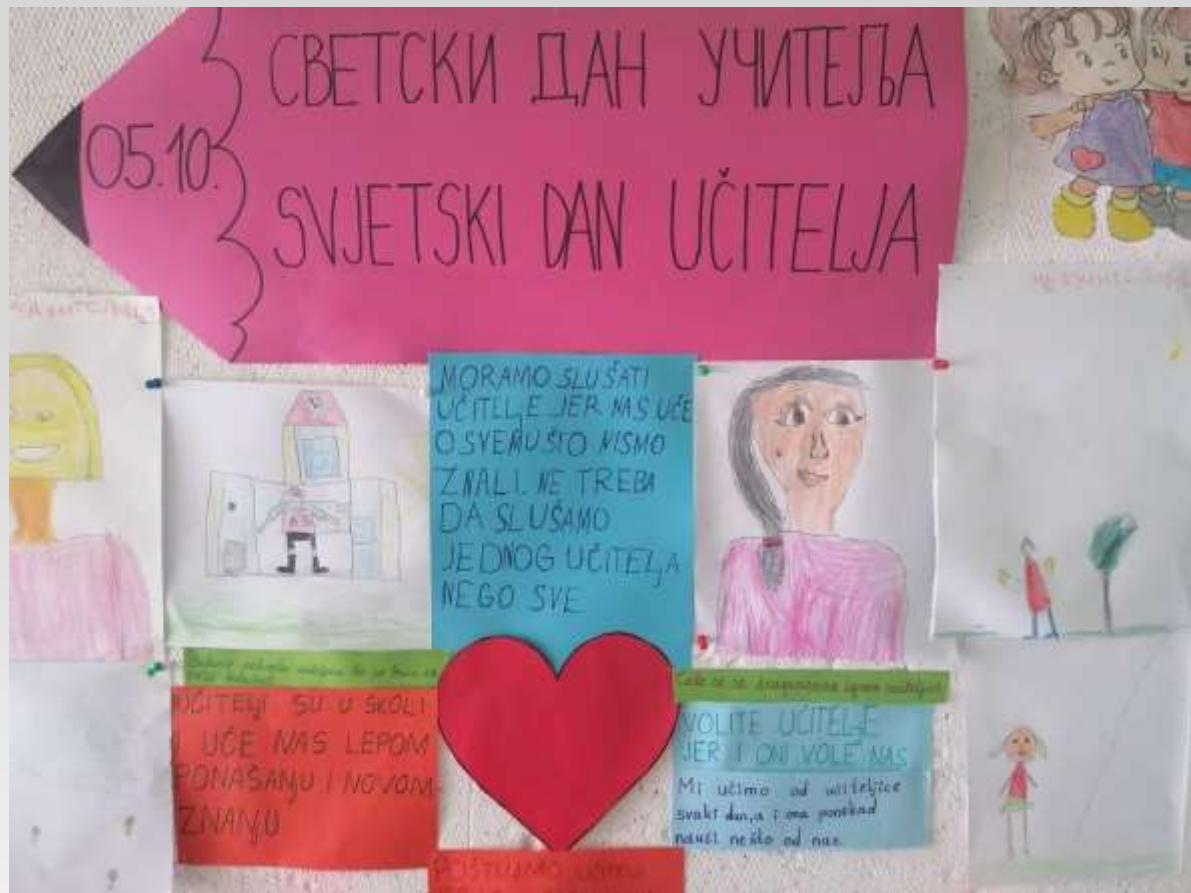 05.10.
СВЕТСКИ ДАН УЧИТЕЉА
SVJETSKI DAN UČITELJA
MORAMO SLUŠATI
UČITELJE JER NAS UČE
O SVEMU ŠTO NISMO
ZNALI. NE TREBA
DA SLUŠAMO
JEDNOG UČITELJA
NEGO SVE
UČITELJI SU U ŠKOLI
I UČE NAS LEPOM
PONAŠANJU I NOVOM
ZNANJU
VOLITE UČITELJE
JER I ONI VOLE NAS
Mi učimo od učiteljice
svaki dan, a i ona ponekad
nauči nešto od nas.
POŠTUJMO